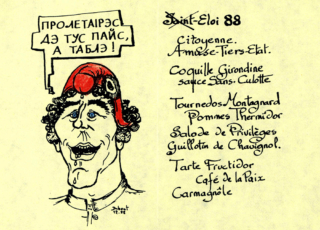 ПРОЛЕТАІРЭС
ДЭ ТУС ПАЙС,
А ТАБЛЭ !
Saint-Eloi 88
Citoyenne.
Amuse-Tiers-Etat.
Coquille Girondine
sauce Sans-Culotte
Tournedos Montagnard
Pommes Thermidor
Salade de Privilèges
Guillotin de Chavignol.
Tarte Fructidor
Café de la Paix
Carmagnole